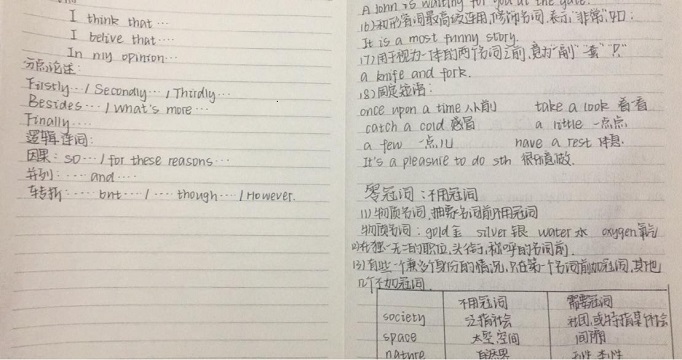 I think that ...
I belive that ...
In my opinion ...
分点论述:
Firstly ... / Secondly ... / Thirdly ...
Besides ... / What's more ...
Finally ...
逻辑连词:
因果: so ... / for these reasons ...
并列: ... and ...
转折: ... but ... / ... though ... / However.
A John is waiting for you at the gate.
(6) 和形容词最高级连用,修饰名词,表示"非常"如:
It is a most funny story.
(7) 用于视为一体的两个名词之前,意为"副""套"
a knife and fork.
(8) 固定短语:
once upon a time 从前 take a look 看看
catch a cold 感冒 a little 一点点
a few 一点儿 have a rest 休息
It's a pleasure to do sth 很乐意做.
零冠词:不用冠词
(1) 物质名词,抽象名词前不用冠词
物质名词: gold 金 silver 银 water 水 oxygen 氧气
(2) 在独一无二的职位,头衔,称呼的名词前.
(3) 有些一个兼多个身份的情况,只在第一个名词前加冠词,其他
几个不加冠词
不用冠词 需要冠词
society 泛指社会 社团,或特指某种社会
space 太空,空间 间隙
nature 自然界